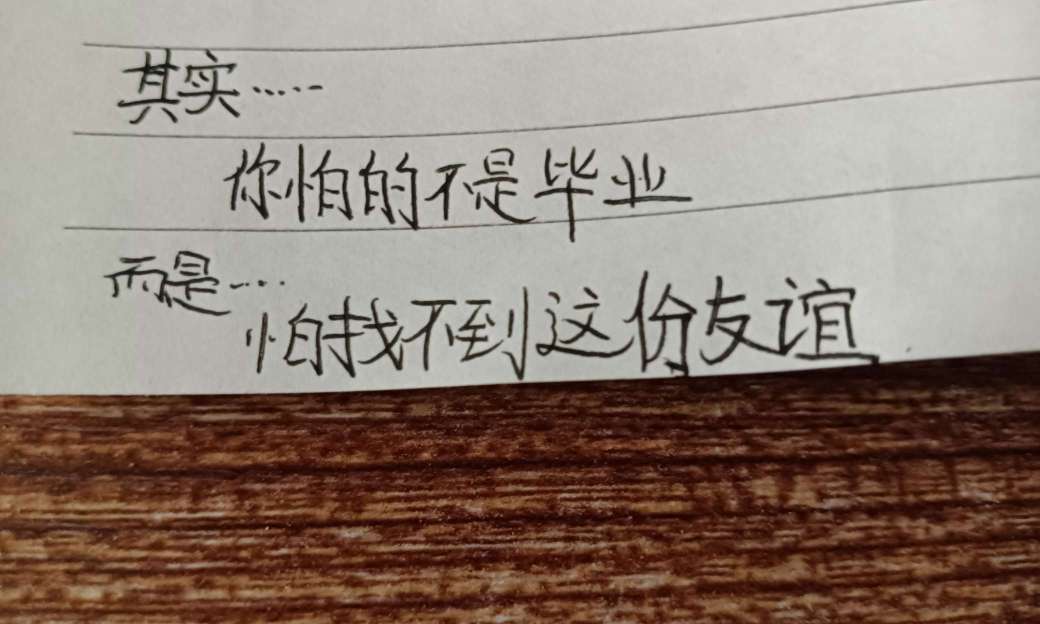 其实……
你怕的不是毕业
而是…
怕找不到这份友谊